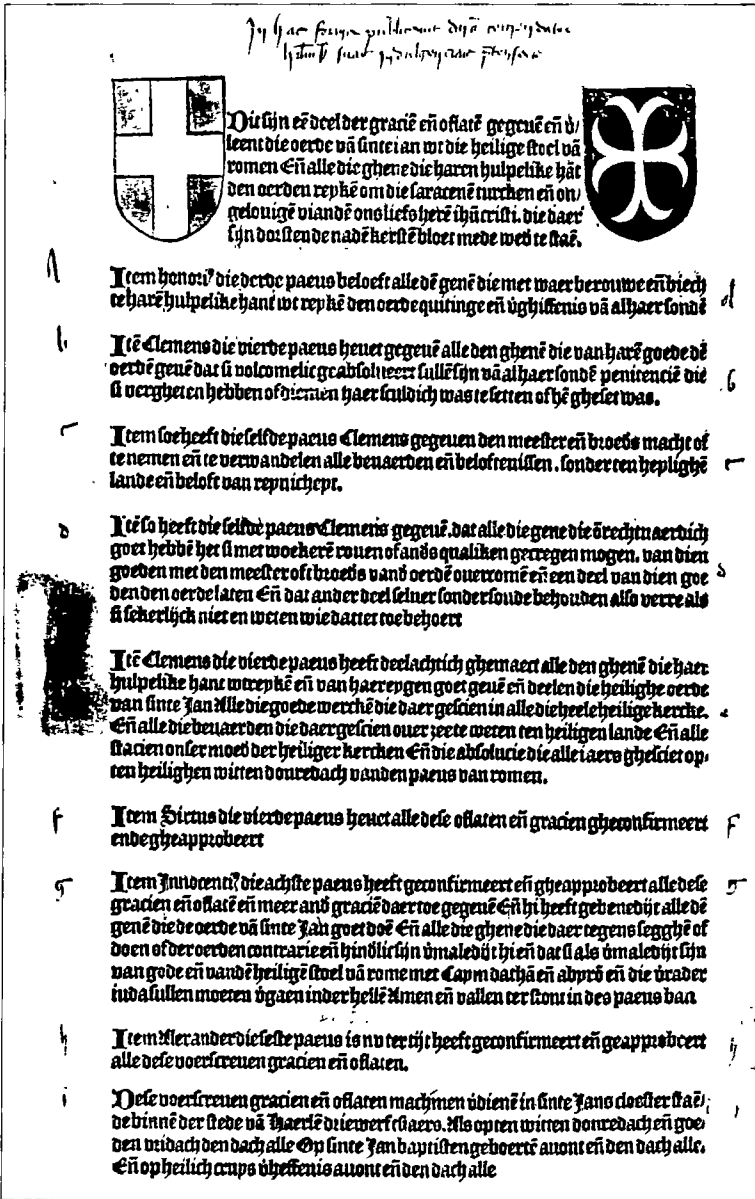 In hac forma publicant
suas indulgencias
Dit sijn eē deel der graciē eñ oflatē gegeuē eñ v̄/
leent die oerde vā sinte ian wt die heilige stoel vā
romen Eñ alle die ghene die haren hulpelike hāt
den oerden reykē om die saracenē turcken eñ on/
gelouigē viandē ons liefs herē ihū cristi. die daer
sijn dorstende na dē kerstē bloet mede wed̄ te staē.
Λ
Item honori⁹ die derde paeus beloeft alle dē genē die met waer berouwe eñ biech
te harē hulpelike hant wt reykē den oerde quitinge eñ v̄ghiffenis vā al haer sondē
b
Itē Clemens die vierde paeus heuet gegeuē alle den ghenē die van harē goede dē
oerdē geuē dat si volcomelic geabsolueert sullē sijn vā al haer sondē penitencie die
si vergheten hebben of diemen haer sculdich was te setten of hē gheset was.
c
Item soe heeft die selfde paeus Clemens gegeuen den meester eñ broed̄s macht of
te nemen eñ te verwandelen alle beuaerden eñ beloftenissen. sonder ten heylighē
lande eñ beloft van reynicheyt.
d
Itē so heeft die selfde paeus Clemens gegeuē. dat alle die gene die ōrechtuaerdich
goet hebbē het si met woekerē rouen of and̄s qualiken gecregen mogen. van dien
goeden met den meester oft broed̄s vand̄ oerdē ouercomē eñ een deel van dien goe
den den oerde laten Eñ dat ander deel seluer sonder sonde behouden also verre als
si sekerlijck niet en weten wie dattet toebehoert
Itē Clemens die vierde paeus heeft deelachtich ghemaect alle den ghenē die haer
hulpelike hant wtreykē eñ van haer eygen goet geuē eñ deelen die heilighe oerde
van sinte Jan Alle die goede werckē die daer gescien in alle die heele heilige kercke.
Eñ alle die beuaerden die daer gescien ouer zee te weten ten heiligen lande Eñ alle
stacien onser moed̄ der heiliger kercken Eñ die absolucie die alle iaers ghesciet op-
ten heilighen witten donredach vanden paeus van romen.
f
Item Sixtus die vierde paeus heuet alle dese oflaten eñ gracien gheconfirmeert
ende gheapprobeert
g
Item Innocenti⁹ die achtste paeus heeft geconfirmeert eñ gheapprobeert alle dese
gracien eñ oflatē eñ meer and̄ graciē daer toe gegeuē Eñ hi heeft gebenedijt alle dē
genē die de oerde vā sinte Jan goet doē Eñ alle die ghene die daer tegens segghē of
doen of der oerden contrarie eñ hindlic sijn v̄maledijt hi eñ dat si als v̄maledijt sijn
van gode eñ vandē heiligē stoel vā rome met Caym dathā eñ abyrō eñ die v̄rader
iudas sullen moeten v̄gaen in der hellē Amen eñ vallen ter stont in des paeus ban
h
Item Alexander die seste paeus is nv ter tijt heeft geconfirmeert eñ geapprobeert
alle dese voerscreuen gracien eñ oflaten.
i
Dese voerscreuen gracien eñ oflaten machmen v̄dienē in sinte Jans cloester staē/
de binnē der stede vā Haerlē driewerf tsiaers. Als op ten witten donredach eñ goe-
den vridach den dach alle Op sinte Jan baptisten geboertē auont eñ den dach alle.
Eñ op heilich cruys v̄heffenis auont eñ den dach alle